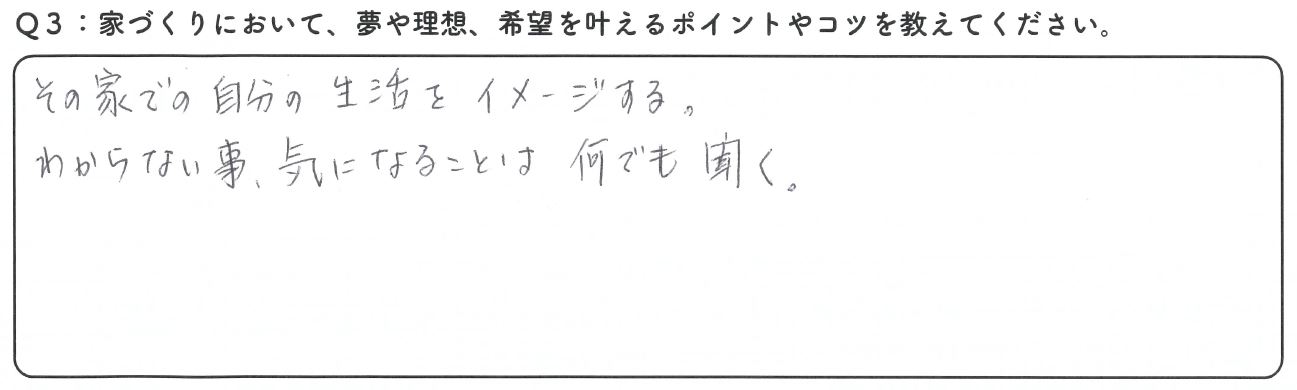 Q3：家づくりにおいて、夢や理想、希望を叶えるポイントやコツを教えてください。
その家での自分の生活をイメージする。
わからない事、気になることは何でも聞く。